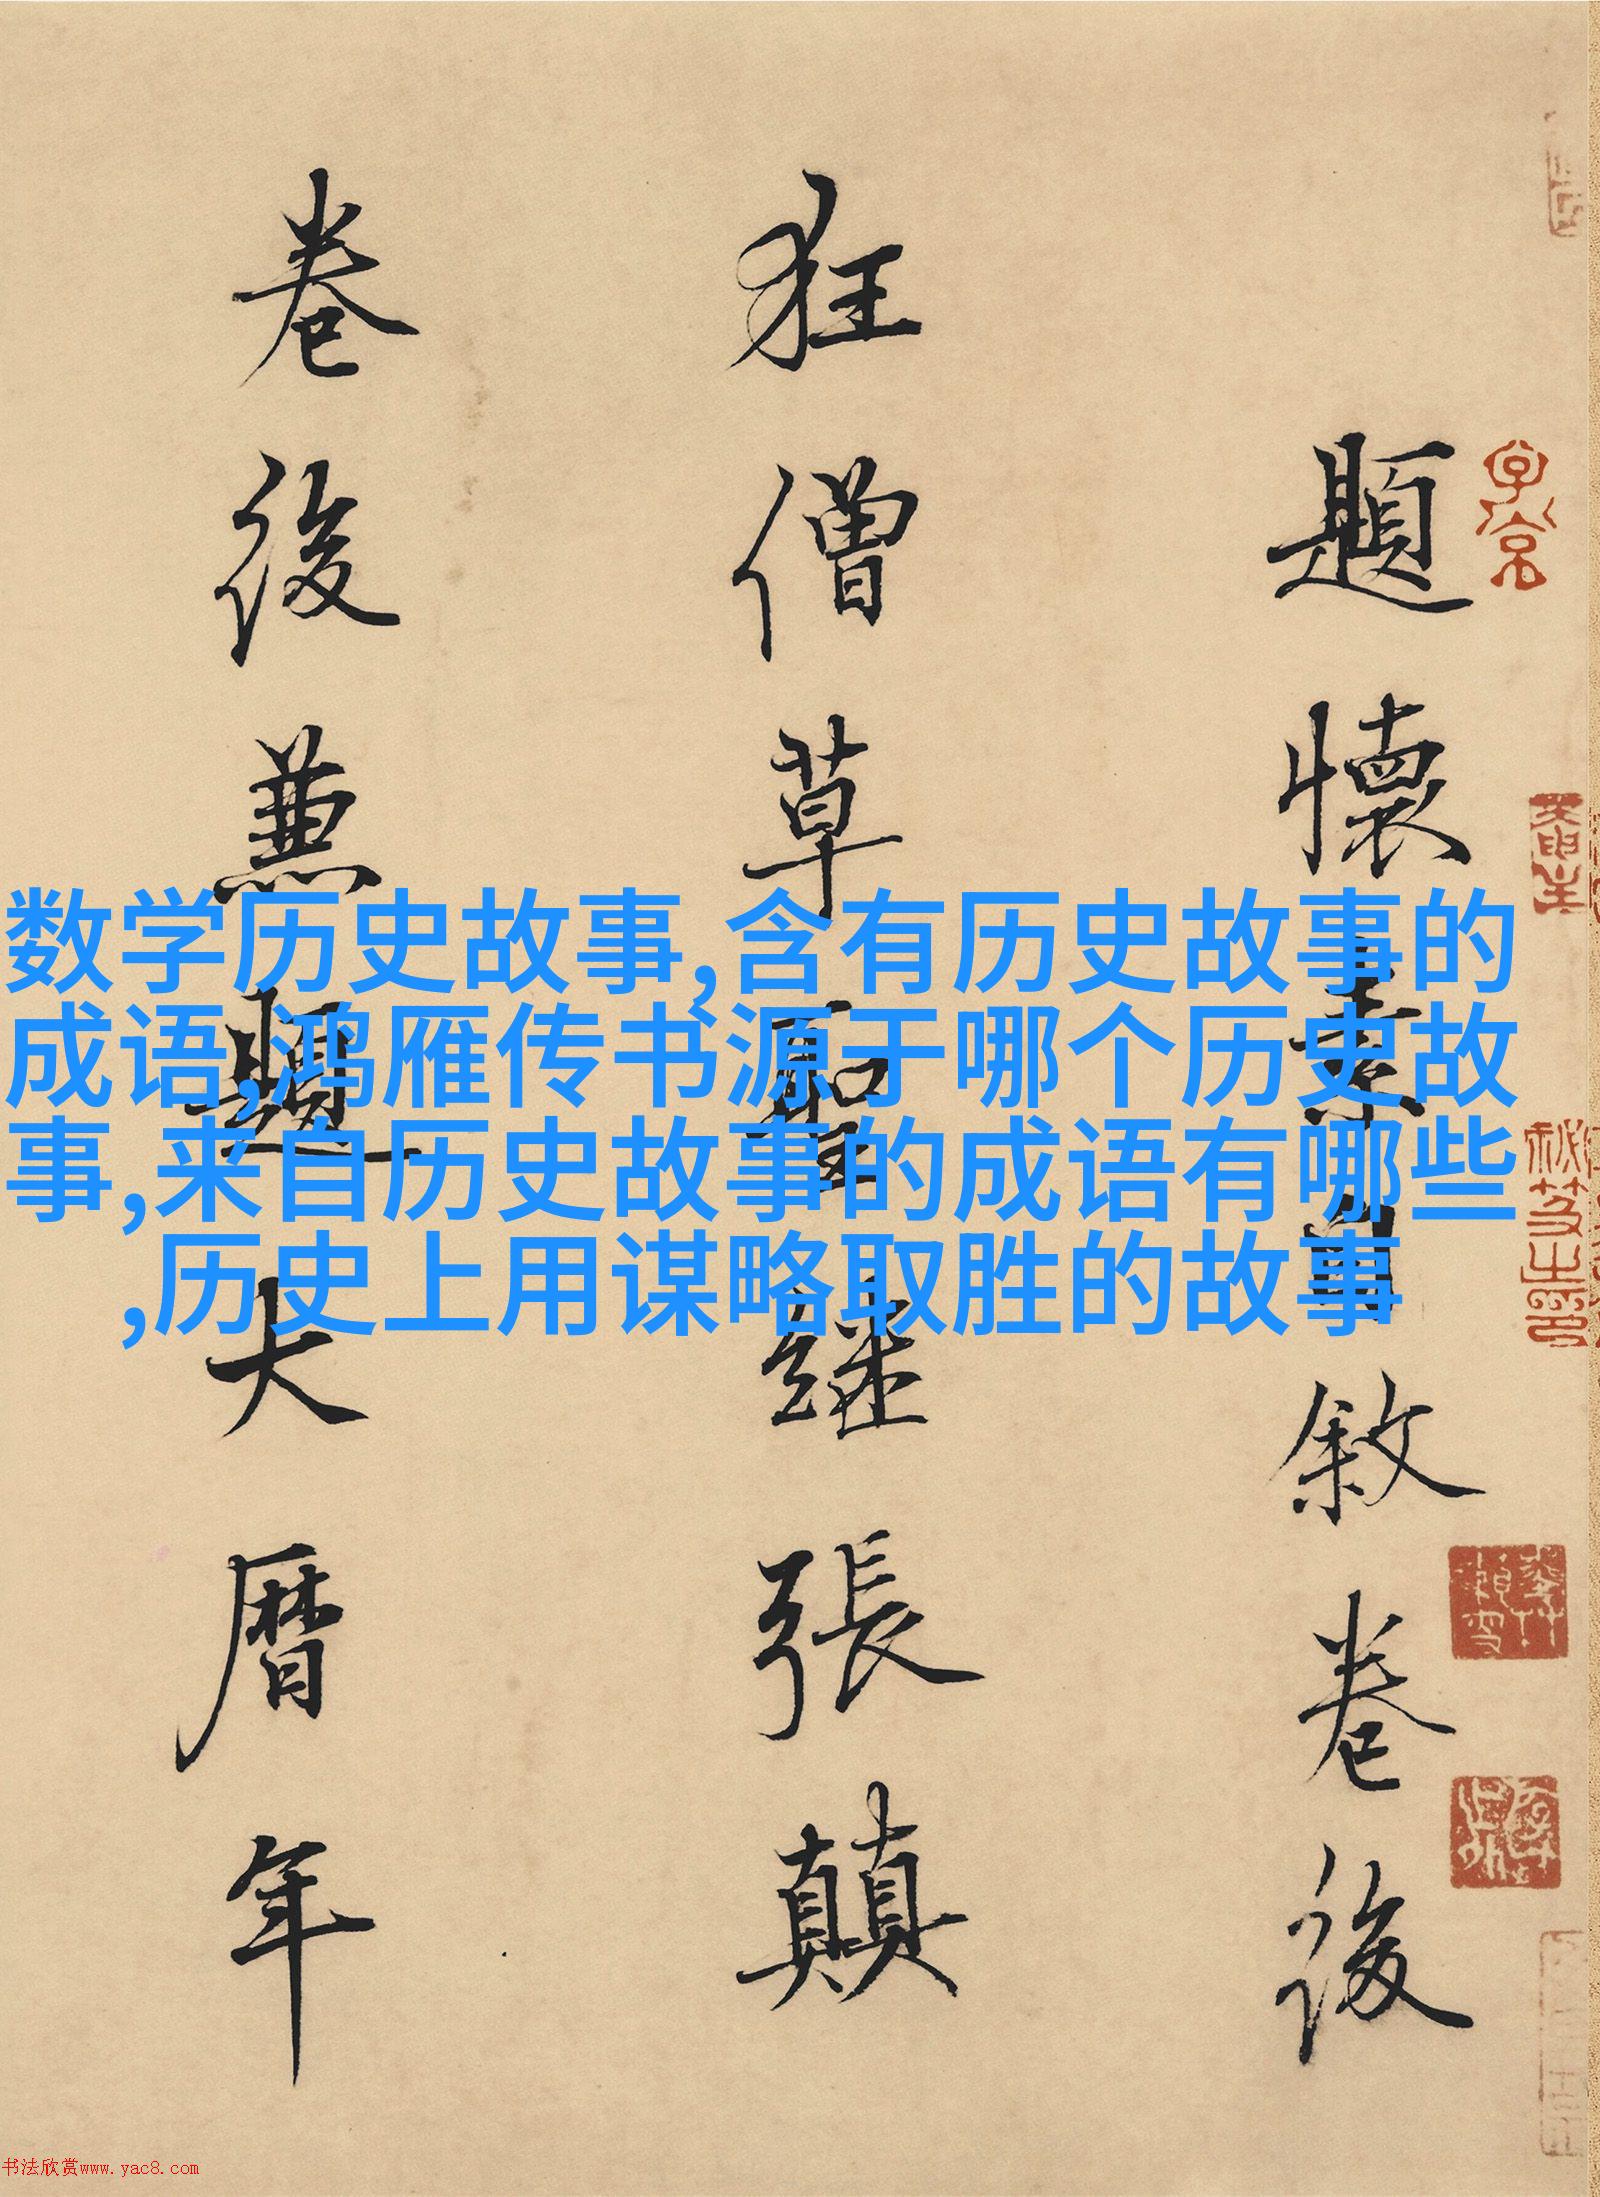 題懷素自敘卷後
狂僧草聖繼張顛
卷後兼題大曆年
数学历史故事,含有历史故事的
成语,鸿雁传书源于哪个历史故
事,来自历史故事的成语有哪些
,历史上用谋略取胜的故事
书法欣赏www.yac8.com